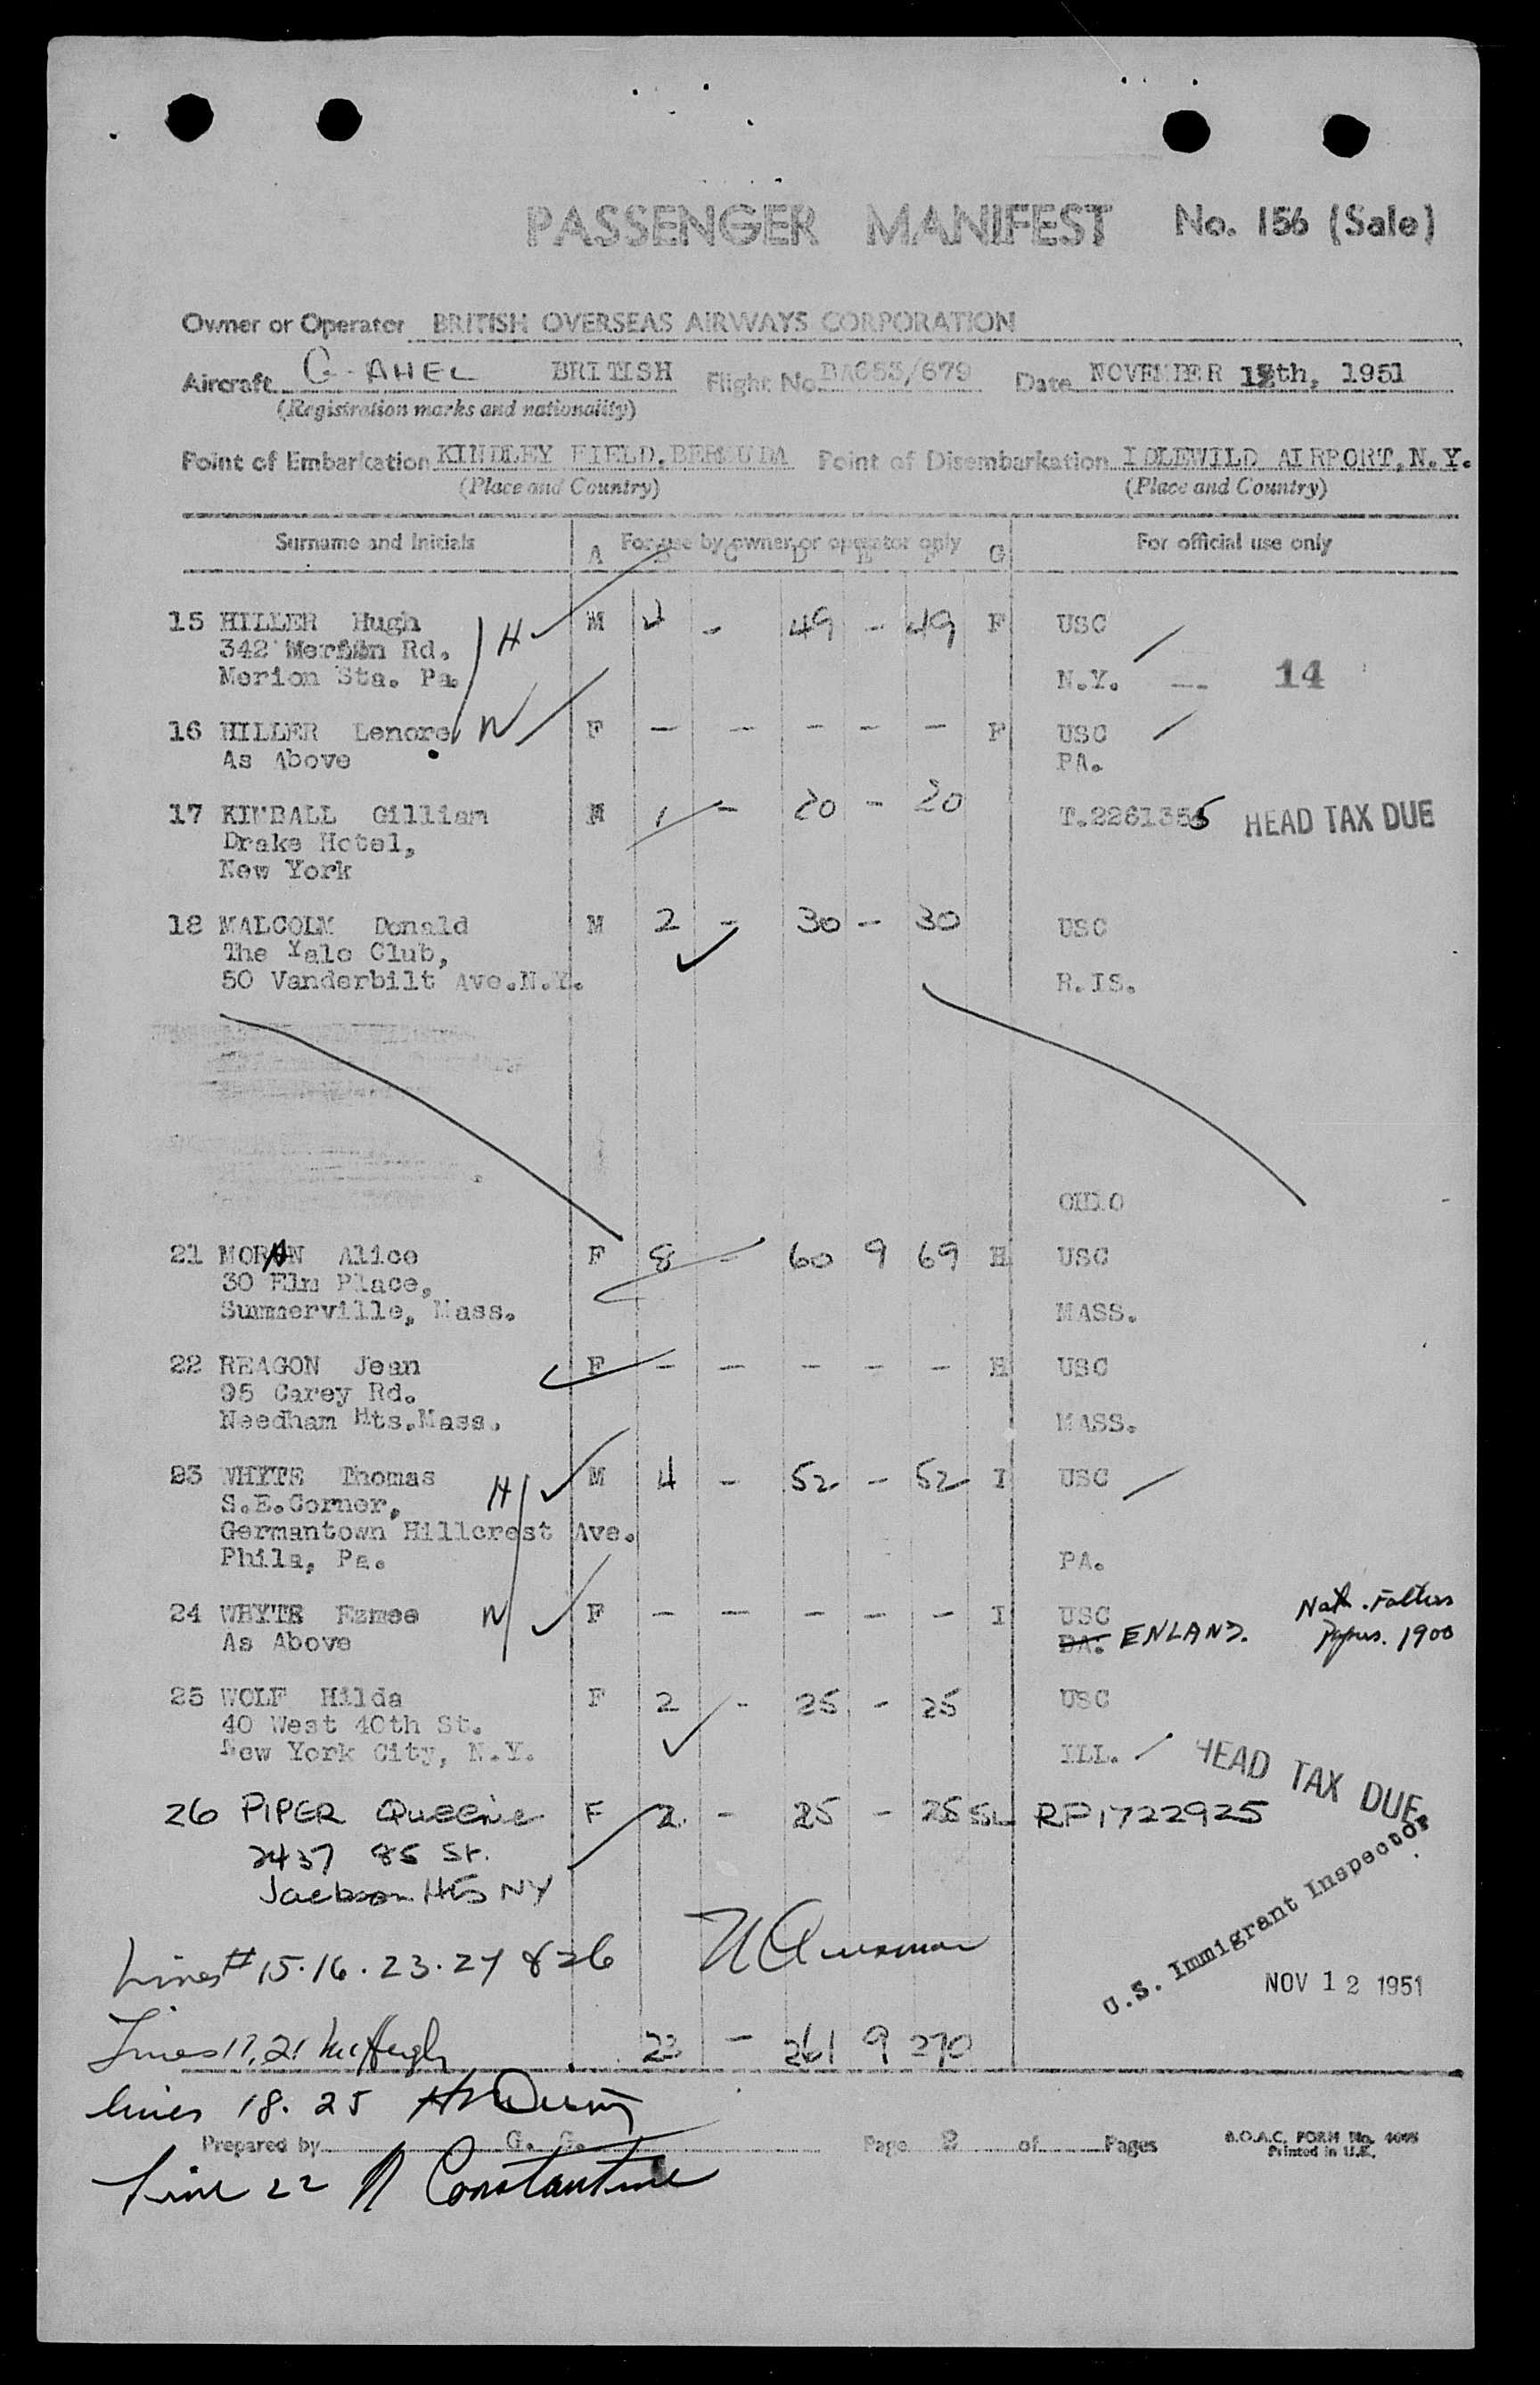 PASSENGER MANIFEST No. 156 (Sale)
Owner or Operator BRITISH OVERSEAS AIRWAYS CORPORATION
Aircraft G-AHEL BRITISH Flight No. BA653/679 Date NOVEMBER 12th, 1951
(Registration marks and nationality)
Point of Embarkation KINDLEY FIELD, BERMUDA Point of Disembarkation IDLEWILD AIRPORT, N.Y.
(Place and Country) (Place and Country)
Surname and Initials For use by owner or operator only For official use only
A B C D E F G
15 HILLER Hugh H M 4 - 49 - 49 F USC
342 Merion Rd.
Merion Sta. Pa. N.Y. -- 14
16 HILLER Lenore W F - - - - - F USC
As Above PA.
17 KIMBALL Gilliam M 1 - 20 - 20 T.2261355 HEAD TAX DUE
Drake Hotel,
New York
18 MALCOLM Donald M 2 - 30 - 30 USC
The Yale Club,
50 Vanderbilt Ave.N.Y. R.IS.
OHIO
21 MORAN Alice F 8 - 60 9 69 H USC
30 Elm Place,
Summerville, Mass. MASS.
22 REAGON Jean F - - - - - H USC
95 Carey Rd.
Needham Hts.Mass. MASS.
23 WHYTE Thomas H M 4 - 52 - 52 I USC
S.E.Corner,
Germantown Hillcrest Ave.
Phila, Pa. PA.
24 WHYTE Esmee W F - - - - - I USC Nat. Fathers
As Above PA. ENLAND. Papers. 1900
25 WOLF Hilda F 2 - 25 - 25 USC
40 West 40th St.
New York City, N.Y. ILL. HEAD TAX DUE
26 PIPER Queenie F 2 - 25 - 25 SL RP1722925
2437 85 St.
Jackson Hts NY
U.S. Immigrant Inspector
Lines # 15.16.23.24 & 26
NOV 12 1951
Lines 17, 21 McHugh 23 - 261 9 270
lines 18. 25
Prepared by G. G. Page 2 of Pages B.O.A.C. FORM No. 4095
Printed in U.K.
Line 22 N Constantine